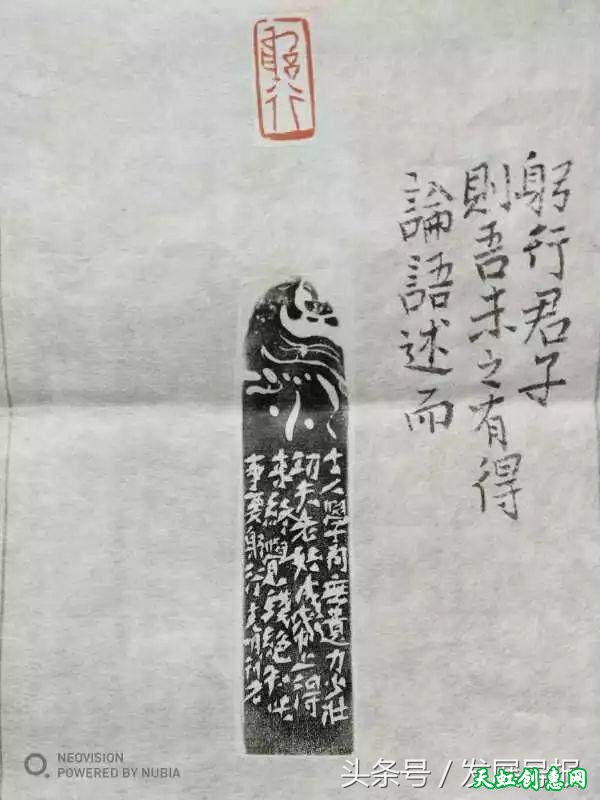 躬行
躬行君子
則吾未之有得
論語述而
人學問無遺力少壯
功夫老始成紙上得
来終覺淺絕知此
事要躬行
NEOVISION
POWERED BY NUBIA
头条号/发展导报
天虹创意网